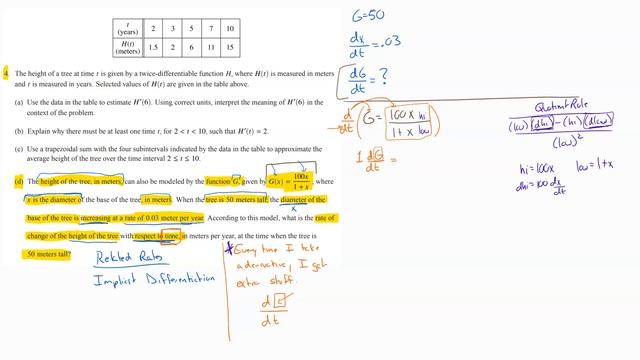 t (years) 2 3 5 7 10
H(t) (meters) 1.5 2 6 11 15
4. The height of a tree at time t is given by a twice-differentiable function H, where H(t) is measured in meters
and t is measured in years. Selected values of H(t) are given in the table above.
(a) Use the data in the table to estimate H′(6). Using correct units, interpret the meaning of H′(6) in the
context of the problem.
(b) Explain why there must be at least one time t, for 2 < t < 10, such that H′(t) = 2.
(c) Use a trapezoidal sum with the four subintervals indicated by the data in the table to approximate the
average height of the tree over the time interval 2 ≤ t ≤ 10.
(d) The height of the tree, in meters, can also be modeled by the function G, given by G(x) = 100x / 1 + x, where
x is the diameter of the base of the tree, in meters. When the tree is 50 meters tall, the diameter of the
x
base of the tree is increasing at a rate of 0.03 meter per year. According to this model, what is the rate of
change of the height of the tree with respect to time, in meters per year, at the time when the tree is
50 meters tall?
Related Rates
Implicit Differentiation
* Every time I take
a derivative, I get
extra stuff.
d t
dt
G=50
dx/dt = .03
dG/dt = ?
d/dt ( G = 100x hi / 1+x low )
1 dG/dt =
Quotient Rule
(low)(dhi) - (hi)(dlow)
(low)²
hi = 100x low = 1+x
dhi = 100 dx/dt